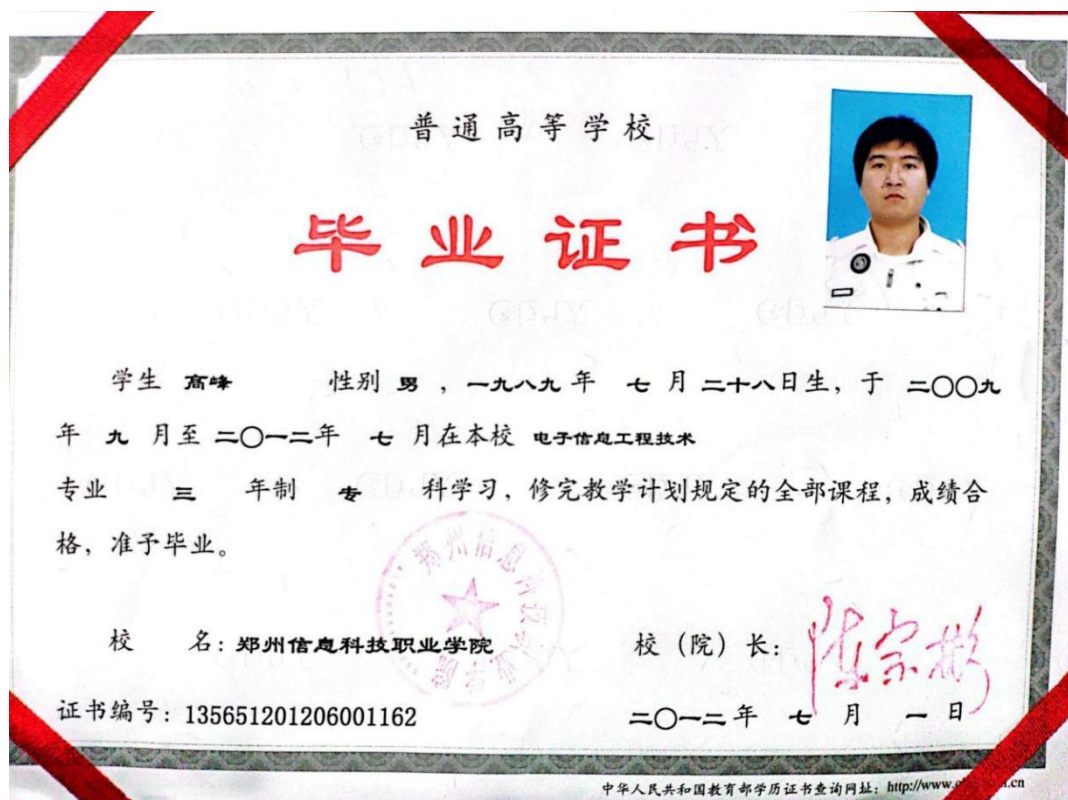 普通高等学校
毕业证书
学生 高峰 性别 男 ，一九八九 年 七 月 二十八日生，于 二〇〇九
年 九 月至 二〇一二年 七 月在本校 电子信息工程技术
专业 三 年制 专 科学习，修完教学计划规定的全部课程，成绩合
格，准予毕业。
郑州信息科技职业学院
校 名：郑州信息科技职业学院 校（院）长：
陈宗彬
证书编号：135651201206001162 二〇一二年 七 月 一 日
中华人民共和国教育部学历证书查询网址：http://www.